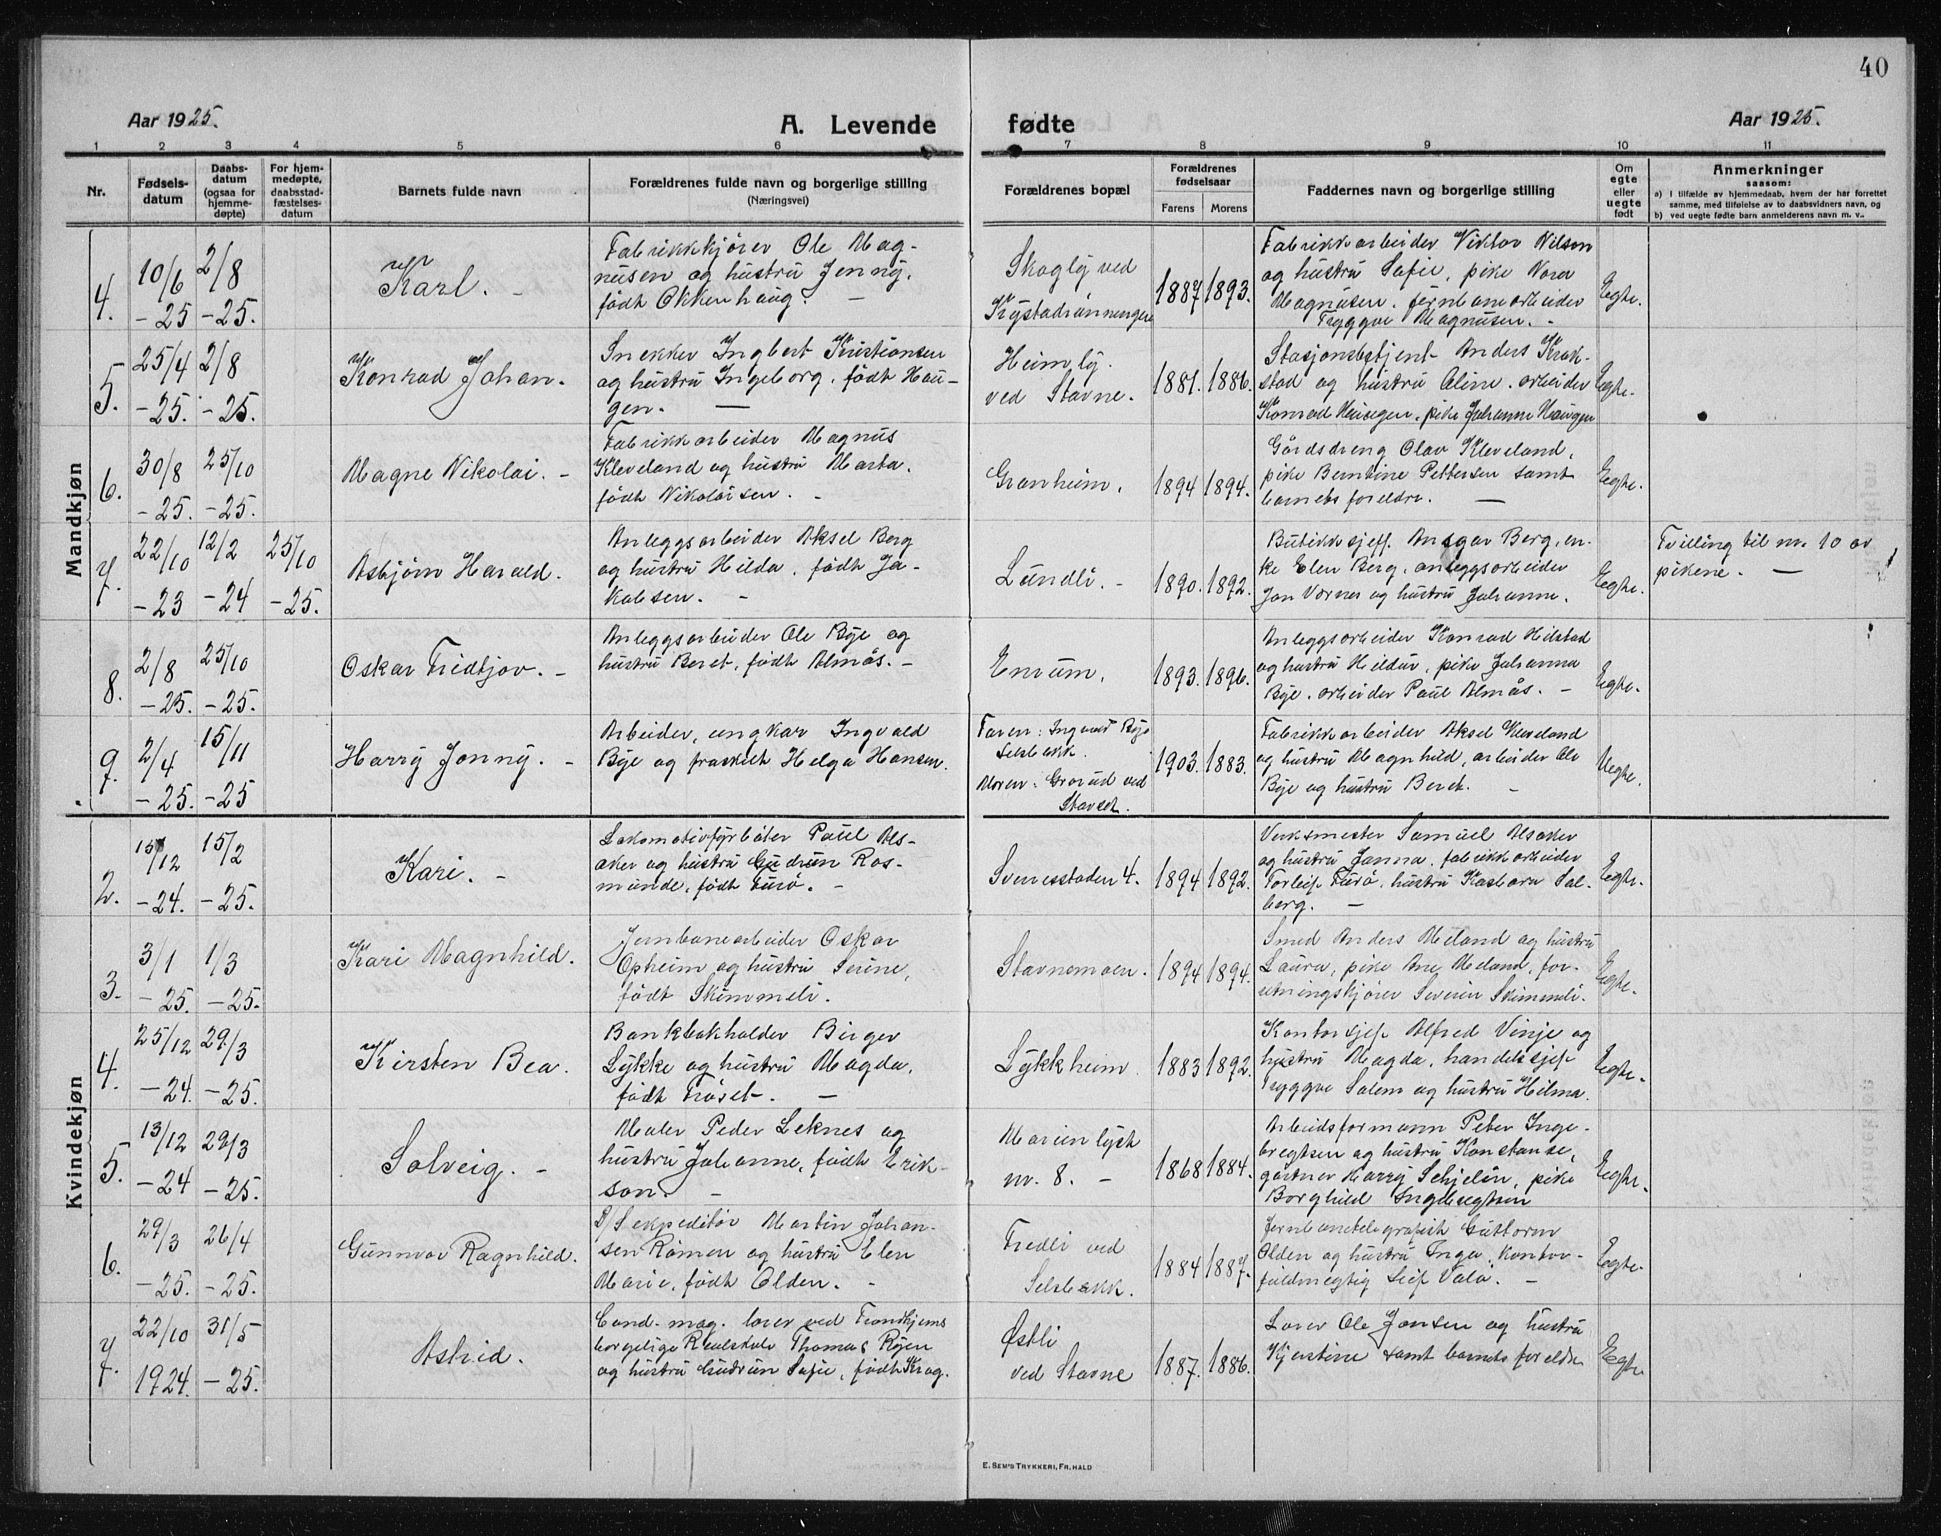 40
Aar 1925.
A. Levende
fødte
Aar 1925.
1 2 3 4 5 6 7 8 9 10 11
Nr.
Fødsels-
datum
Daabs-
datum
(ogsaa for
hjemme-
døpte)
For hjem-
medøpte,
daabsstad-
fæstelses-
datum
Barnets fulde navn
Forældrenes fulde navn og borgerlige stilling
(Næringsvei)
Forældrenes bopæl
Forældrenes
fødselsaar
Farens Morens
Faddernes navn og borgerlige stilling
Om
egte
eller
uegte
født
Anmerkninger
saasom:
a) I tilfælde av hjemmedaab, hvem der har forrettet
samme, med tilføielse av to daabsvidners navn, og
b) ved uegte fødte barn anmelderens navn m. v.
Mandkjøn
4.
10/6
-25
2/8
-25.
Karl. -
Fabrikkjører Ole Mag-
nusen og hustru Jenny,
født Okkenhaug. -
Skogly ved
Kystadrønningen
1887 1893.
Fabrikkarbeider Viktor Nilsen
og hustru Sofie, pike Nora
Magnusen, jernbanearbeider
Tryggve Magnusen. -
Egte.
5.
25/4
-25.
2/8
-25.
Konrad Johan.
Snekker Ingbert Kristiansen
og hustru Ingeborg, født Hau-
gen. -
Heimly
ved Stavne.
1881. 1886.
Stasjonsbetjent Anders Krok-
stad og hustru Oline, arbeider
Konrad Haugen, pike Johanne Haugen
Egte.
6.
30/8
-25.
25/10
-25.
Magne Nikolai. -
Fabrikkarbeider Magnus
Kleveland og hustru Marta,
født Nikolaisen. -
Granheim.
1894 1894.
Gårdsdreng Olav Kleveland,
pike Berntine Pettersen samt
barnets foreldre. -
Egte.
7.
22/10
-23
12/2
-24
25/10
-25.
Asbjørn Harald.
Anleggsarbeider Aksel Berg
og hustru Hilda, født Ja-
kobsen. -
Lundli. -
1890. 1892.
Butikksjef Ansgar Berg, en-
ke Elen Berg, anleggsarbeider
Jon Vornes og hustru Johanne.
Egte.
Tvilling til nr. 10 av
pikene. -
8.
2/8
-25.
25/10
-25.
Oskar Fridtjov. -
Anleggsarbeider Ole Bye og
hustru Beret, født Almås. -
Enrum.
1893. 1896.
Anleggsarbeider Konrad Hilstad
og hustru Hildur, pike Johanna
Bye, arbeider Paul Almås. -
Egte.
9.
2/4
-25.
15/11
-25
Harry Jonny. -
Arbeider, ungkar Ingvald
Bye og fraskilt Helga Hansen.
Faren: Ingvald Bye
Selsbakk.
Moren: Grorud ved
Stavset.
1903. 1883.
Fabrikkarbeider Aksel Kleveland
og hustru Magnhild, arbeider Ole
Bye og hustru Beret. -
Uegte.
Kvindekjøn
2.
15/12
-24.
15/2
-25.
Kari. -
Lokomotivfyrbøter Paul Als-
aker og hustru Gudrun Ros-
munde, født Furø. -
Svenesstaden 4.
1894 1892.
Verksmester Samuel Alsaker
og hustru Janna, fabrikkarbeider
Torleif Furø, hustru Kasbara Sol-
berg. -
Egte.
3.
3/1
-25.
1/3
-25.
Kari Magnhild.
Jernbanearbeider Oskar
Opheim og hustru Serine,
født Skimmeli.
Stavnemoen.
1894 1894.
Smed Anders Meland og hustru
Laura, pike Ane Meland, for-
retningskjører Severin Skimmeli.
Egte.
4.
25/12
-24.
29/3
-25.
Kirsten Bea.
Bankbokholder Birger
Lykke og hustru Magda,
født Frøset. -
Lykkheim.
1883 1892.
Kontorsjef Alfred Vinje og
hustru Magda, handelssjef
Tryggve Solem og hustru Hilma.
Egte.
5.
13/12
-24
29/3
-25.
Solveig. -
Maler Peder Leknes og
hustru Johanne, født Erik-
son. -
Marienlyst
nr. 8. -
1868 1884.
Arbeidsformann Peter Inge-
bregtsen og hustru Konstanse,
gartner Harry Schjelin, pike
Borghild Ingebregtsen
Egte.
6.
29/3
-25.
26/4
-25.
Gunnvor Ragnhild.
D/S ekspeditør Martin Johan-
sen Rømen og hustru Elen
Marie, født Olden. -
Fredli ved
Selsbakk.
1884 1887.
Jernbanetelegrafist Guttorm
Olden og hustru Inga, kontor-
fuldmegtig Leif Valø. -
Egte.
7.
22/10
1924.
31/5
-25.
Astrid.
Cand. mag. lærer ved Trondhjems
borgelige Realskole Thomas Røen
og hustru Gudrun Sofie, født Krog.
Østli
ved Stavne
1887. 1886.
Lærer Ole Jonsen og hustru
Kjerstine samt barnets foreldre
Egte
E. SEM'S TRYKKERI, FR. HALD